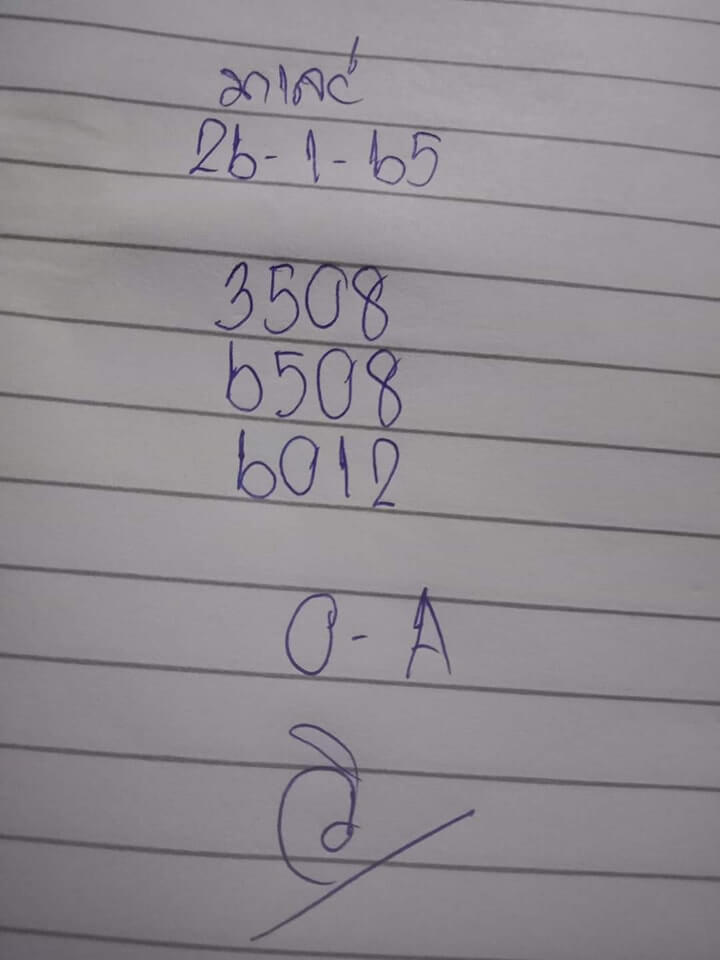 มาเลย์
26-1-65
3508
6508
6012
0-A